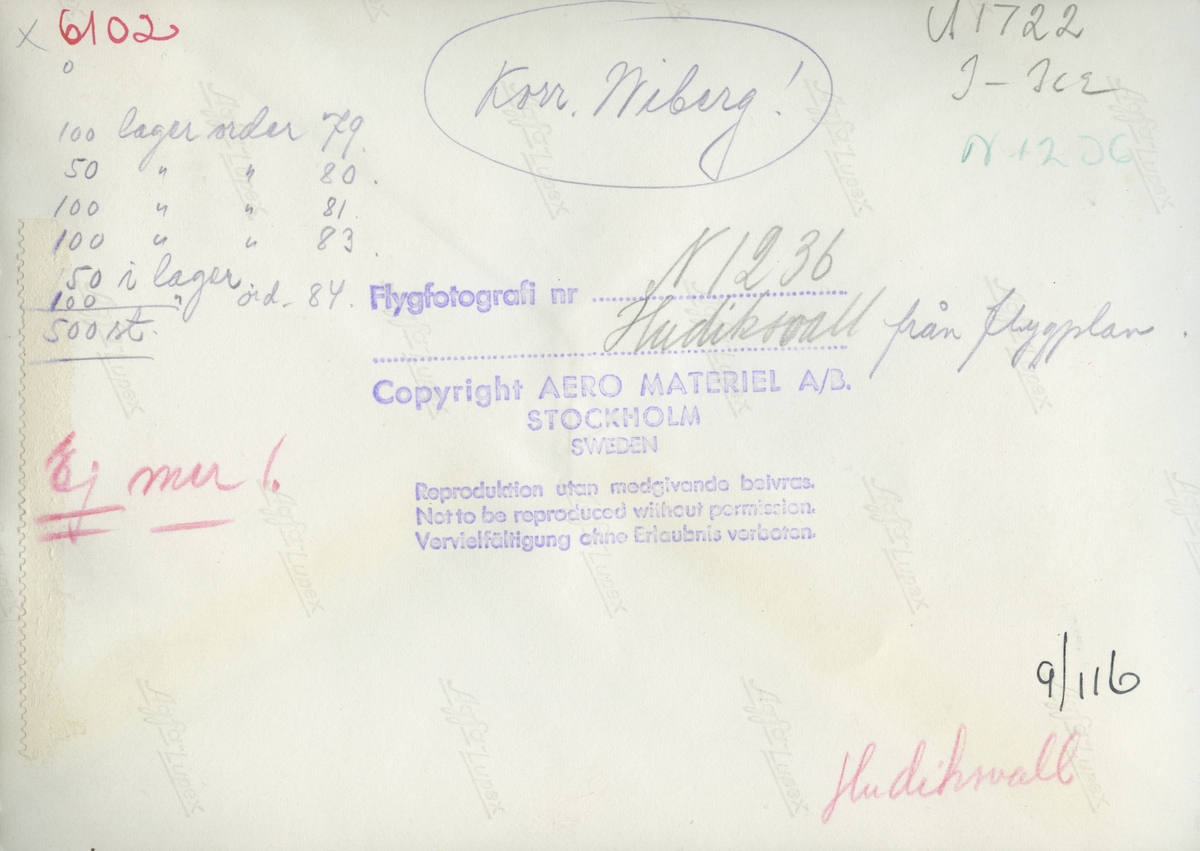 x 6102
Korr. Wiberg!
U 1722
N 1236
100 lager order 79.
50 " " 80.
100 " " 81.
100 " " 83.
50 i lager
100 " ord. 84.
500 st.
Flygfotografi nr N 1236
Hudiksvall från flygplan.
Copyright AERO MATERIEL A/B.
STOCKHOLM
SWEDEN
Reproduktion utan medgivande beivras.
Not to be reproduced without permission.
Vervielfältigung ohne Erlaubnis verboten.
Ej mer!
9/116
Hudiksvall
Agfa-Lupex